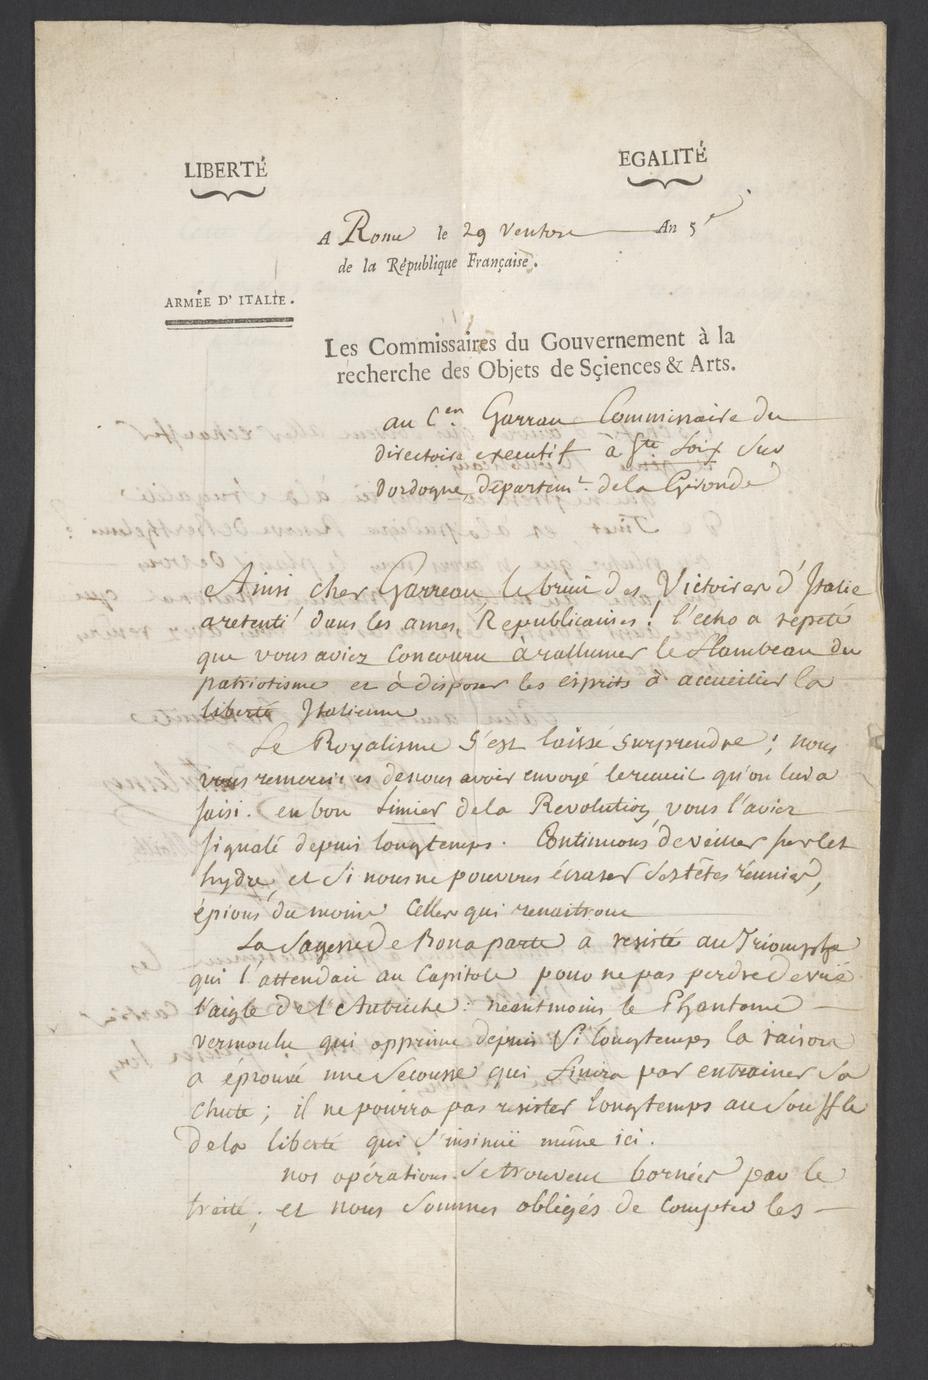 LIBERTÉ
EGALITÉ
A Rome le 29 Ventose An 5e
de la République Française.
ARMÉE D'ITALIE.
Les Commissaires du Gouvernement à la
recherche des Objets de Sçiences & Arts.
au Cen Garrau Commissaire du
directoire executif à Ste foix sur
Dordogne, départemt. de la Gironde
Ainsi cher Garreau le bruit des Victoires d'Italie
a retenti dans les ames Republicaines ! l'echo a répété
que vous aviez concouru à rallumer le flambeau du
patriotisme et à disposer les esprits à accueillir la
liberté Italienne
Le Royalisme s'est laissé surprendre ; nous
vous remercions de nous avoir envoyé le recueil qu'on lui a
saisi. en bon limier de la Revolution vous l'aviez
signalé depuis longtemps. Continuons de veiller sur les
hydre, et si nous ne pouvons écraser ses têtes réunies,
épions du moins celles qui renaitront
La Sagesse de Bonaparte a resisté au Triomphe
qui l'attendait au Capitole pour ne pas perdre de vüe
l'aigle de l'Autriche : néantmoins le Phantome
vermoulu qui opprime depuis si longtemps la raison
a éprouvé une secousse qui finira par entrainer sa
chute ; il ne pourra pas resister longtemps au souffle
de la liberté qui s'insinuë même ici.
nos opérations se trouvent bornées par le
traité, et nous sommes obligés de compter les